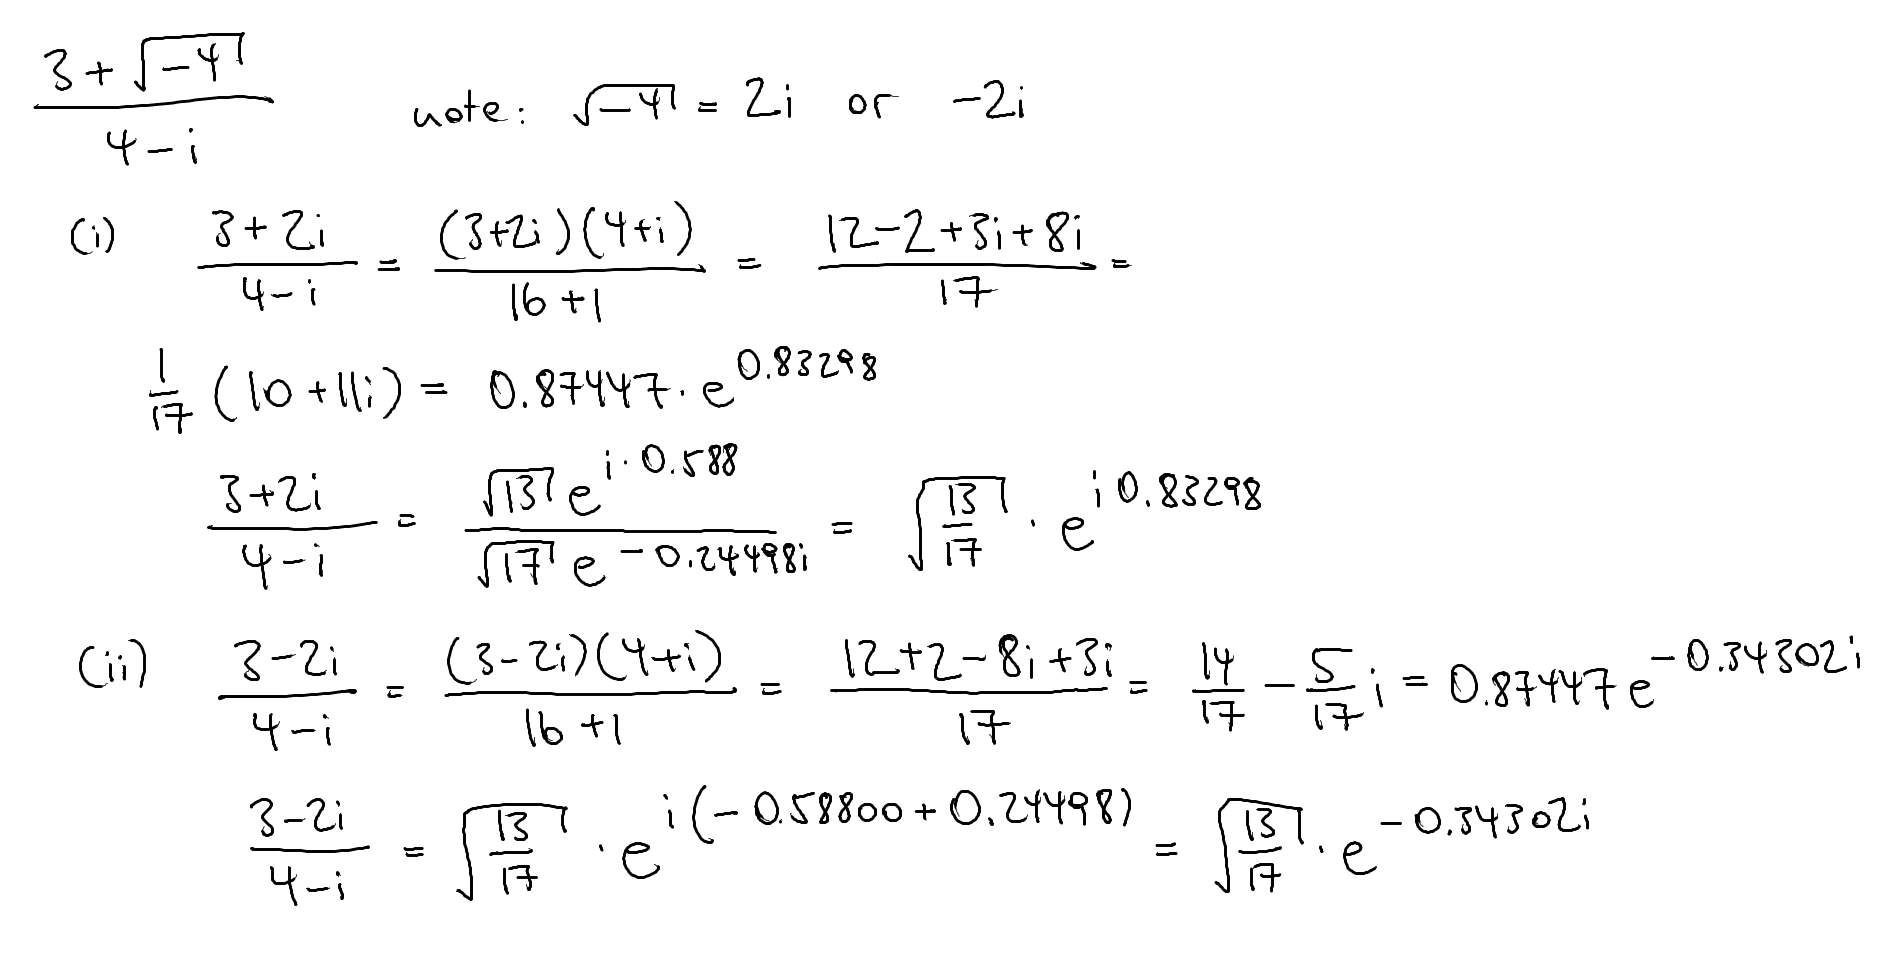 (3 + √-4) / (4 - i)   note: √-4 = 2i or -2i
(i) (3 + 2i) / (4 - i) = (3+2i)(4+i) / (16 + 1) = (12 - 2 + 3i + 8i) / 17 =
1/17 (10 + 11i) = 0.87447 · e^0.83298
(3 + 2i) / (4 - i) = √13 e^(i·0.588) / √17 e^(-0.24498i) = √(13/17) · e^(i 0.83298)
(ii) (3 - 2i) / (4 - i) = (3 - 2i)(4 + i) / (16 + 1) = (12 + 2 - 8i + 3i) / 17 = 14/17 - 5/17 i = 0.87447 e^(-0.34302i)
(3 - 2i) / (4 - i) = √(13/17) · e^(i(-0.58800 + 0.24498)) = √(13/17) · e^(-0.34302i)